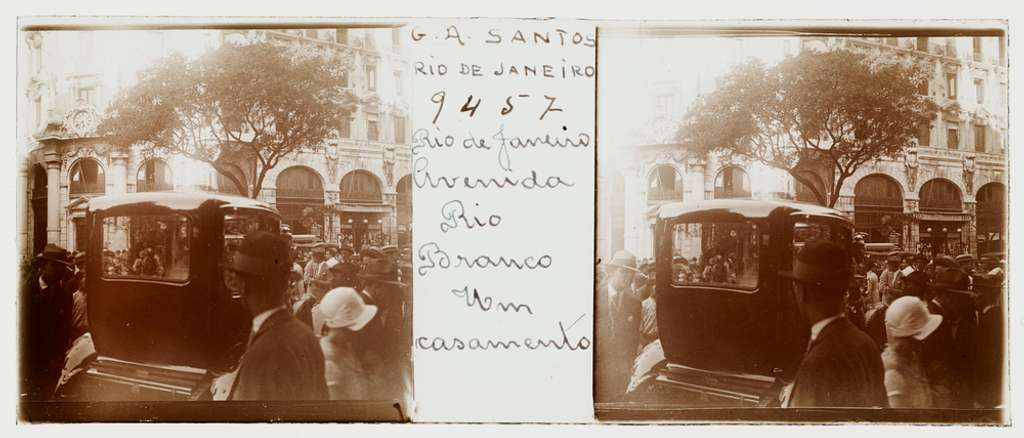 G. A. SANTOS
RIO DE JANEIRO
9457
Rio de Janeiro
Avenida
Rio
Branco
Um
casamento